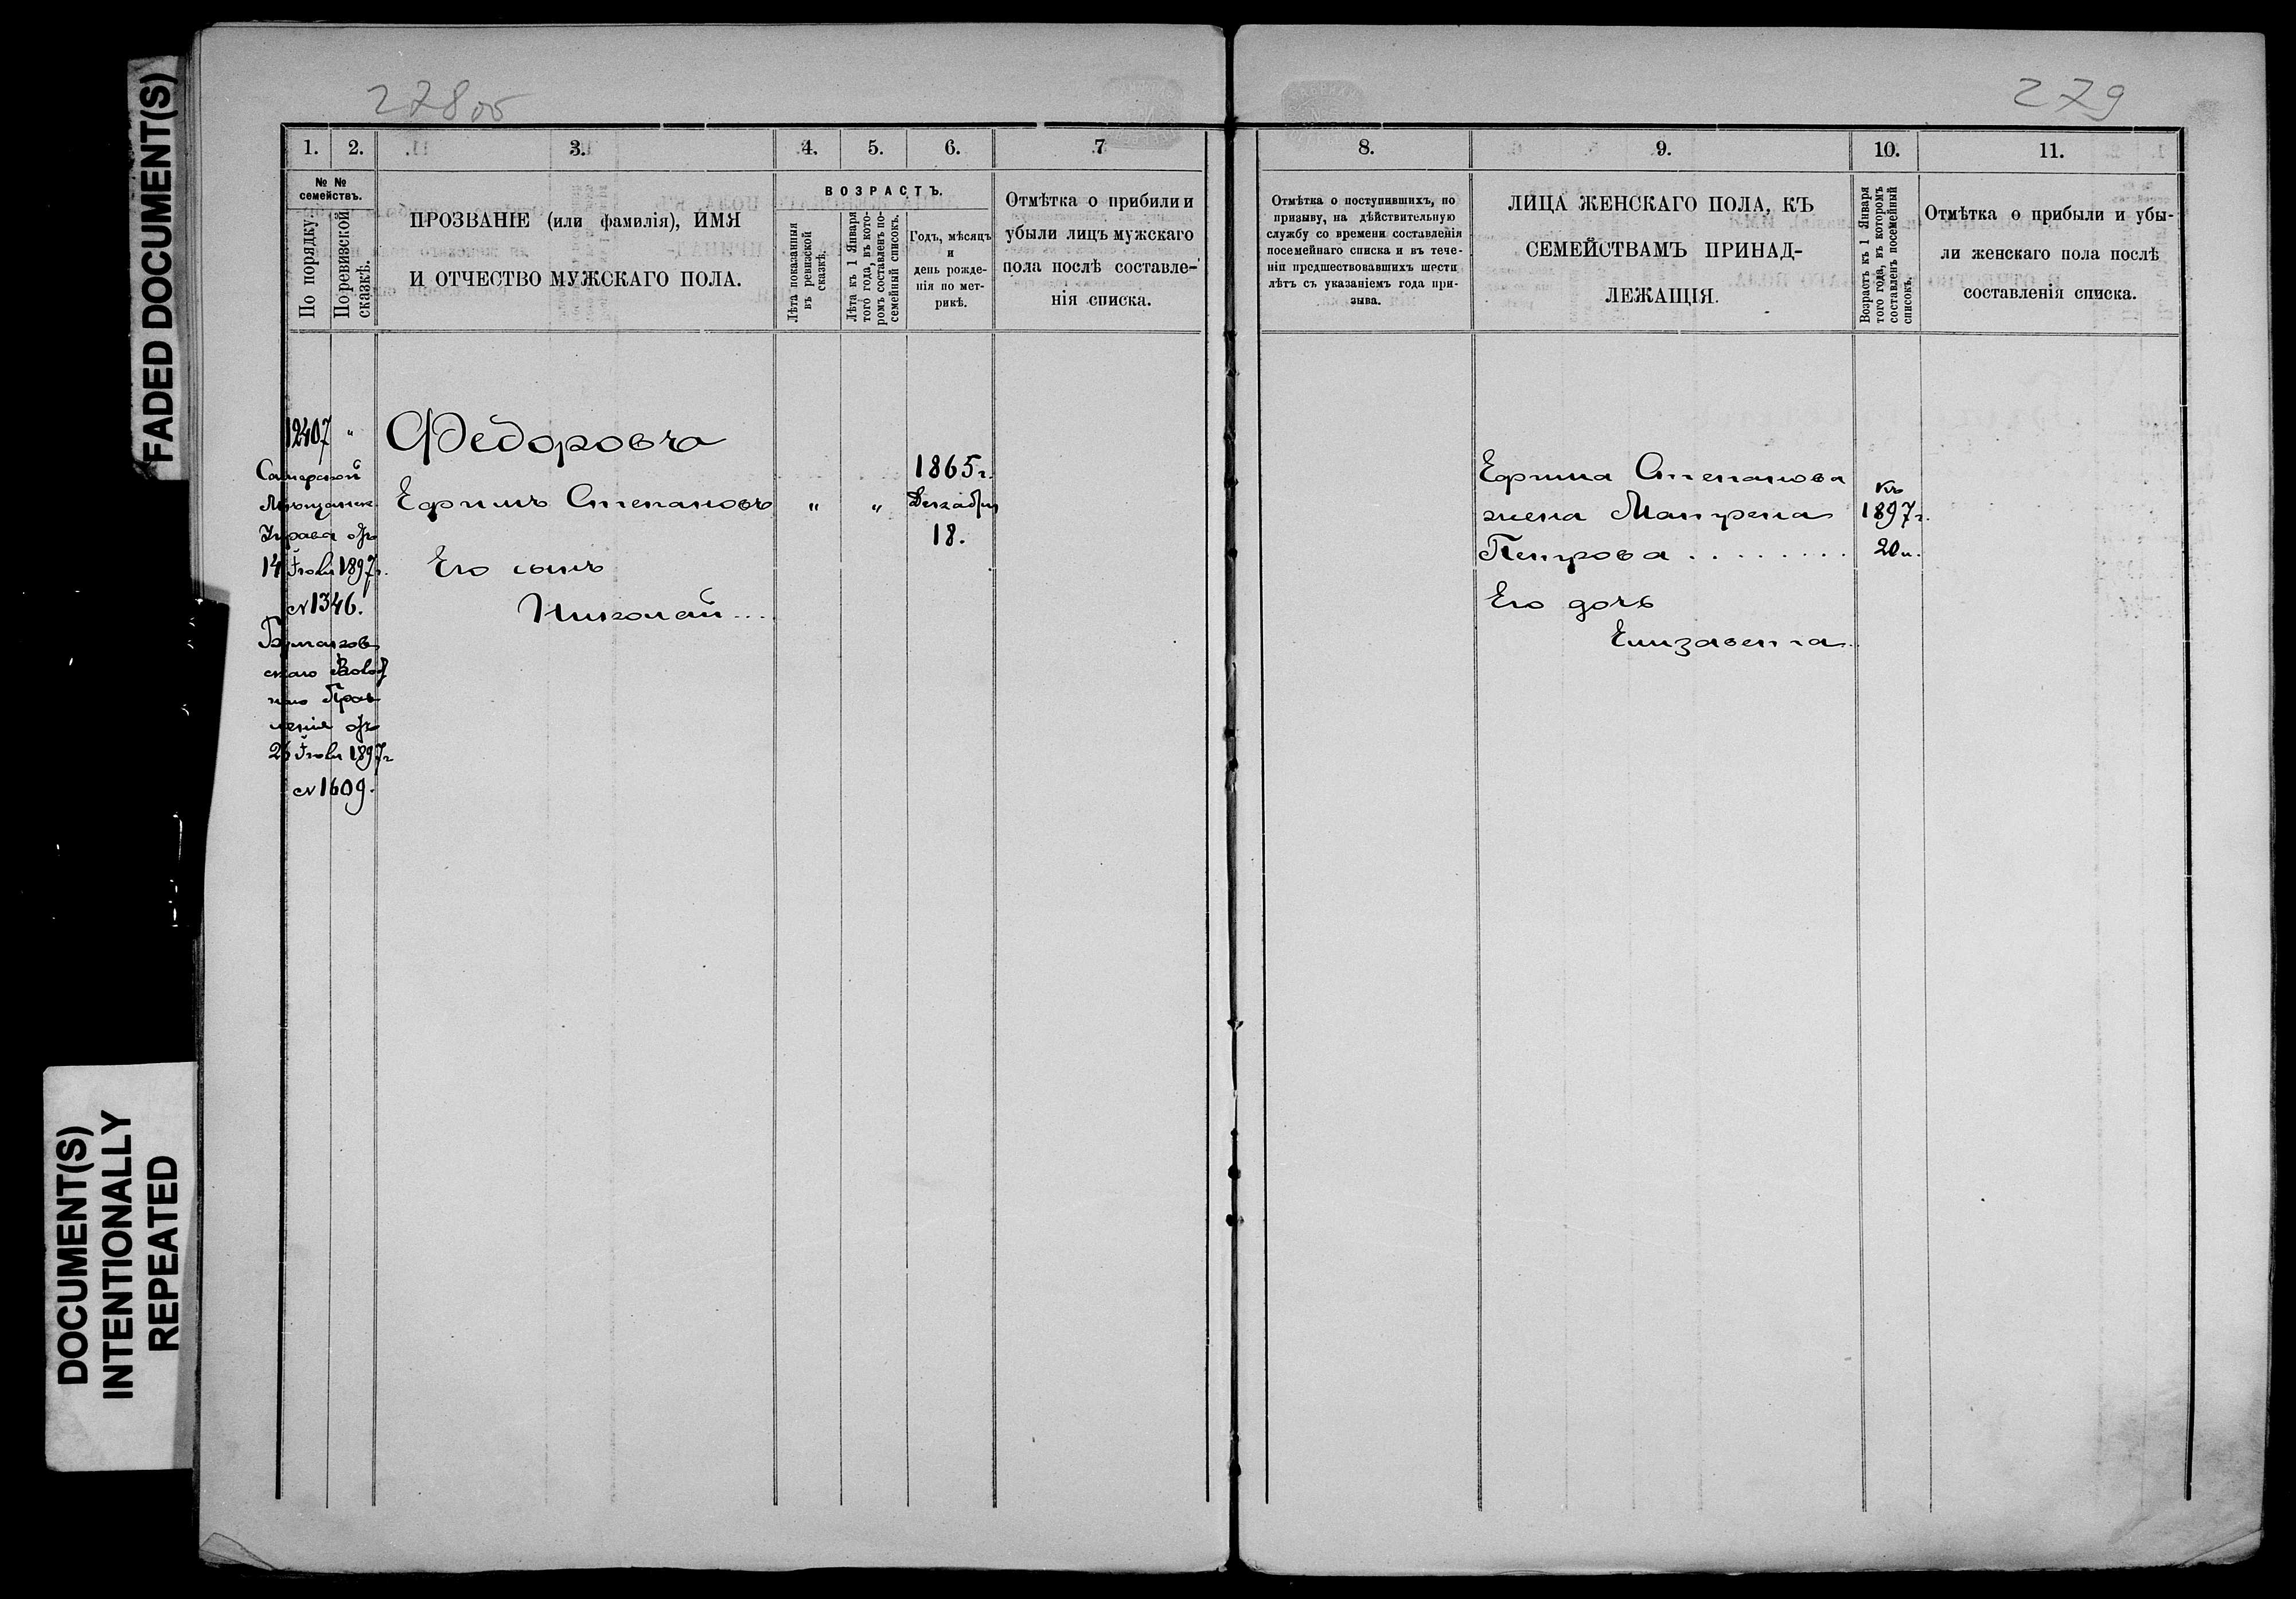 FADED DOCUMENT(S)
DOCUMENT(S)
INTENTIONALLY
REPEATED
278 об
1. 2. 3. 4. 5. 6. 7
№ №
семействъ.
По порядку
По ревизской
сказкѣ.
ПРОЗВАНІЕ (или фамилія), ИМЯ
И ОТЧЕСТВО МУЖСКАГО ПОЛА.
ВОЗРАСТЪ.
Лѣта показанныя
въ ревизской
сказкѣ.
Лѣта къ 1 Января
того года, въ кото-
ромъ составленъ по-
семейный списокъ.
Годъ, мѣсяцъ
и
день рожде-
нія по мет-
рикѣ.
Отмѣтка о прибыли и
убыли лицъ мужскаго
пола послѣ составле-
нія списка.
12407 "
Самарской
Мѣщанск.
Управы отъ
14 Іюля 1897г.
№ 1346.
скаго Волост
наго Прав
ленія отъ
1897г
№ 1609.
Федоровъ
Ефимъ Степановъ " "
1865г.
Декабря
18.
Его сынъ
Николай...
279
8. 9. 10. 11.
Отмѣтка о поступившихъ, по
призыву, на дѣйствительную
службу со времени составленія
посемейнаго списка и въ тече-
ніи предшествовавшихъ шести
лѣтъ съ указаніемъ года при-
зыва.
ЛИЦА ЖЕНСКАГО ПОЛА, КЪ
СЕМЕЙСТВАМЪ ПРИНАД-
ЛЕЖАЩІЯ.
Возрастъ къ 1 Января
того года, въ которомъ
составленъ посемейный
списокъ.
Отмѣтка о прибыли и убы-
ли женскаго пола послѣ
составленія списка.
Ефима Степанова
жена Матрена
Петрова . . . . . . . .
Къ
1897г.
20 л.
Его дочь
Елизавета.